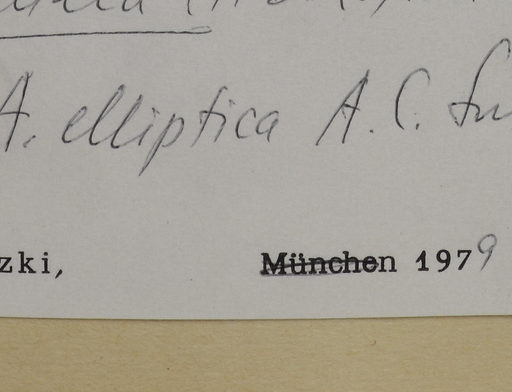 A. elliptica A. C. Sm
zki, München 1979